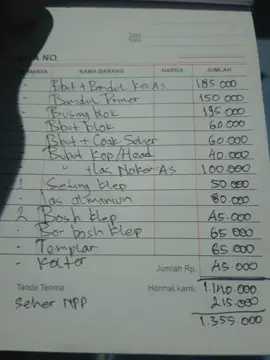 NOTA NO.
BANYAKNYA NAMA BARANG HARGA JUMLAH
- Bbut + Bandul Ker As 185 000
- Bandul Primer 150 000
- Busing blok 195 000
- Bbut blok 60 000
- Bbut + Cook Seher 60.000
- Bubut Kop/Head 40.000
- " + Las Noken As 100 000
1 Seting klep 50 000
- las almanium 80.000
2 Bosh klep 45.000
- Bor bosh klep 65 000
- Templar 65 000
- Kolter 45.000
Jumlah Rp.
Tanda Terima Hormat kami, 1.140.000
Seher NPP 215.000
1.355.000